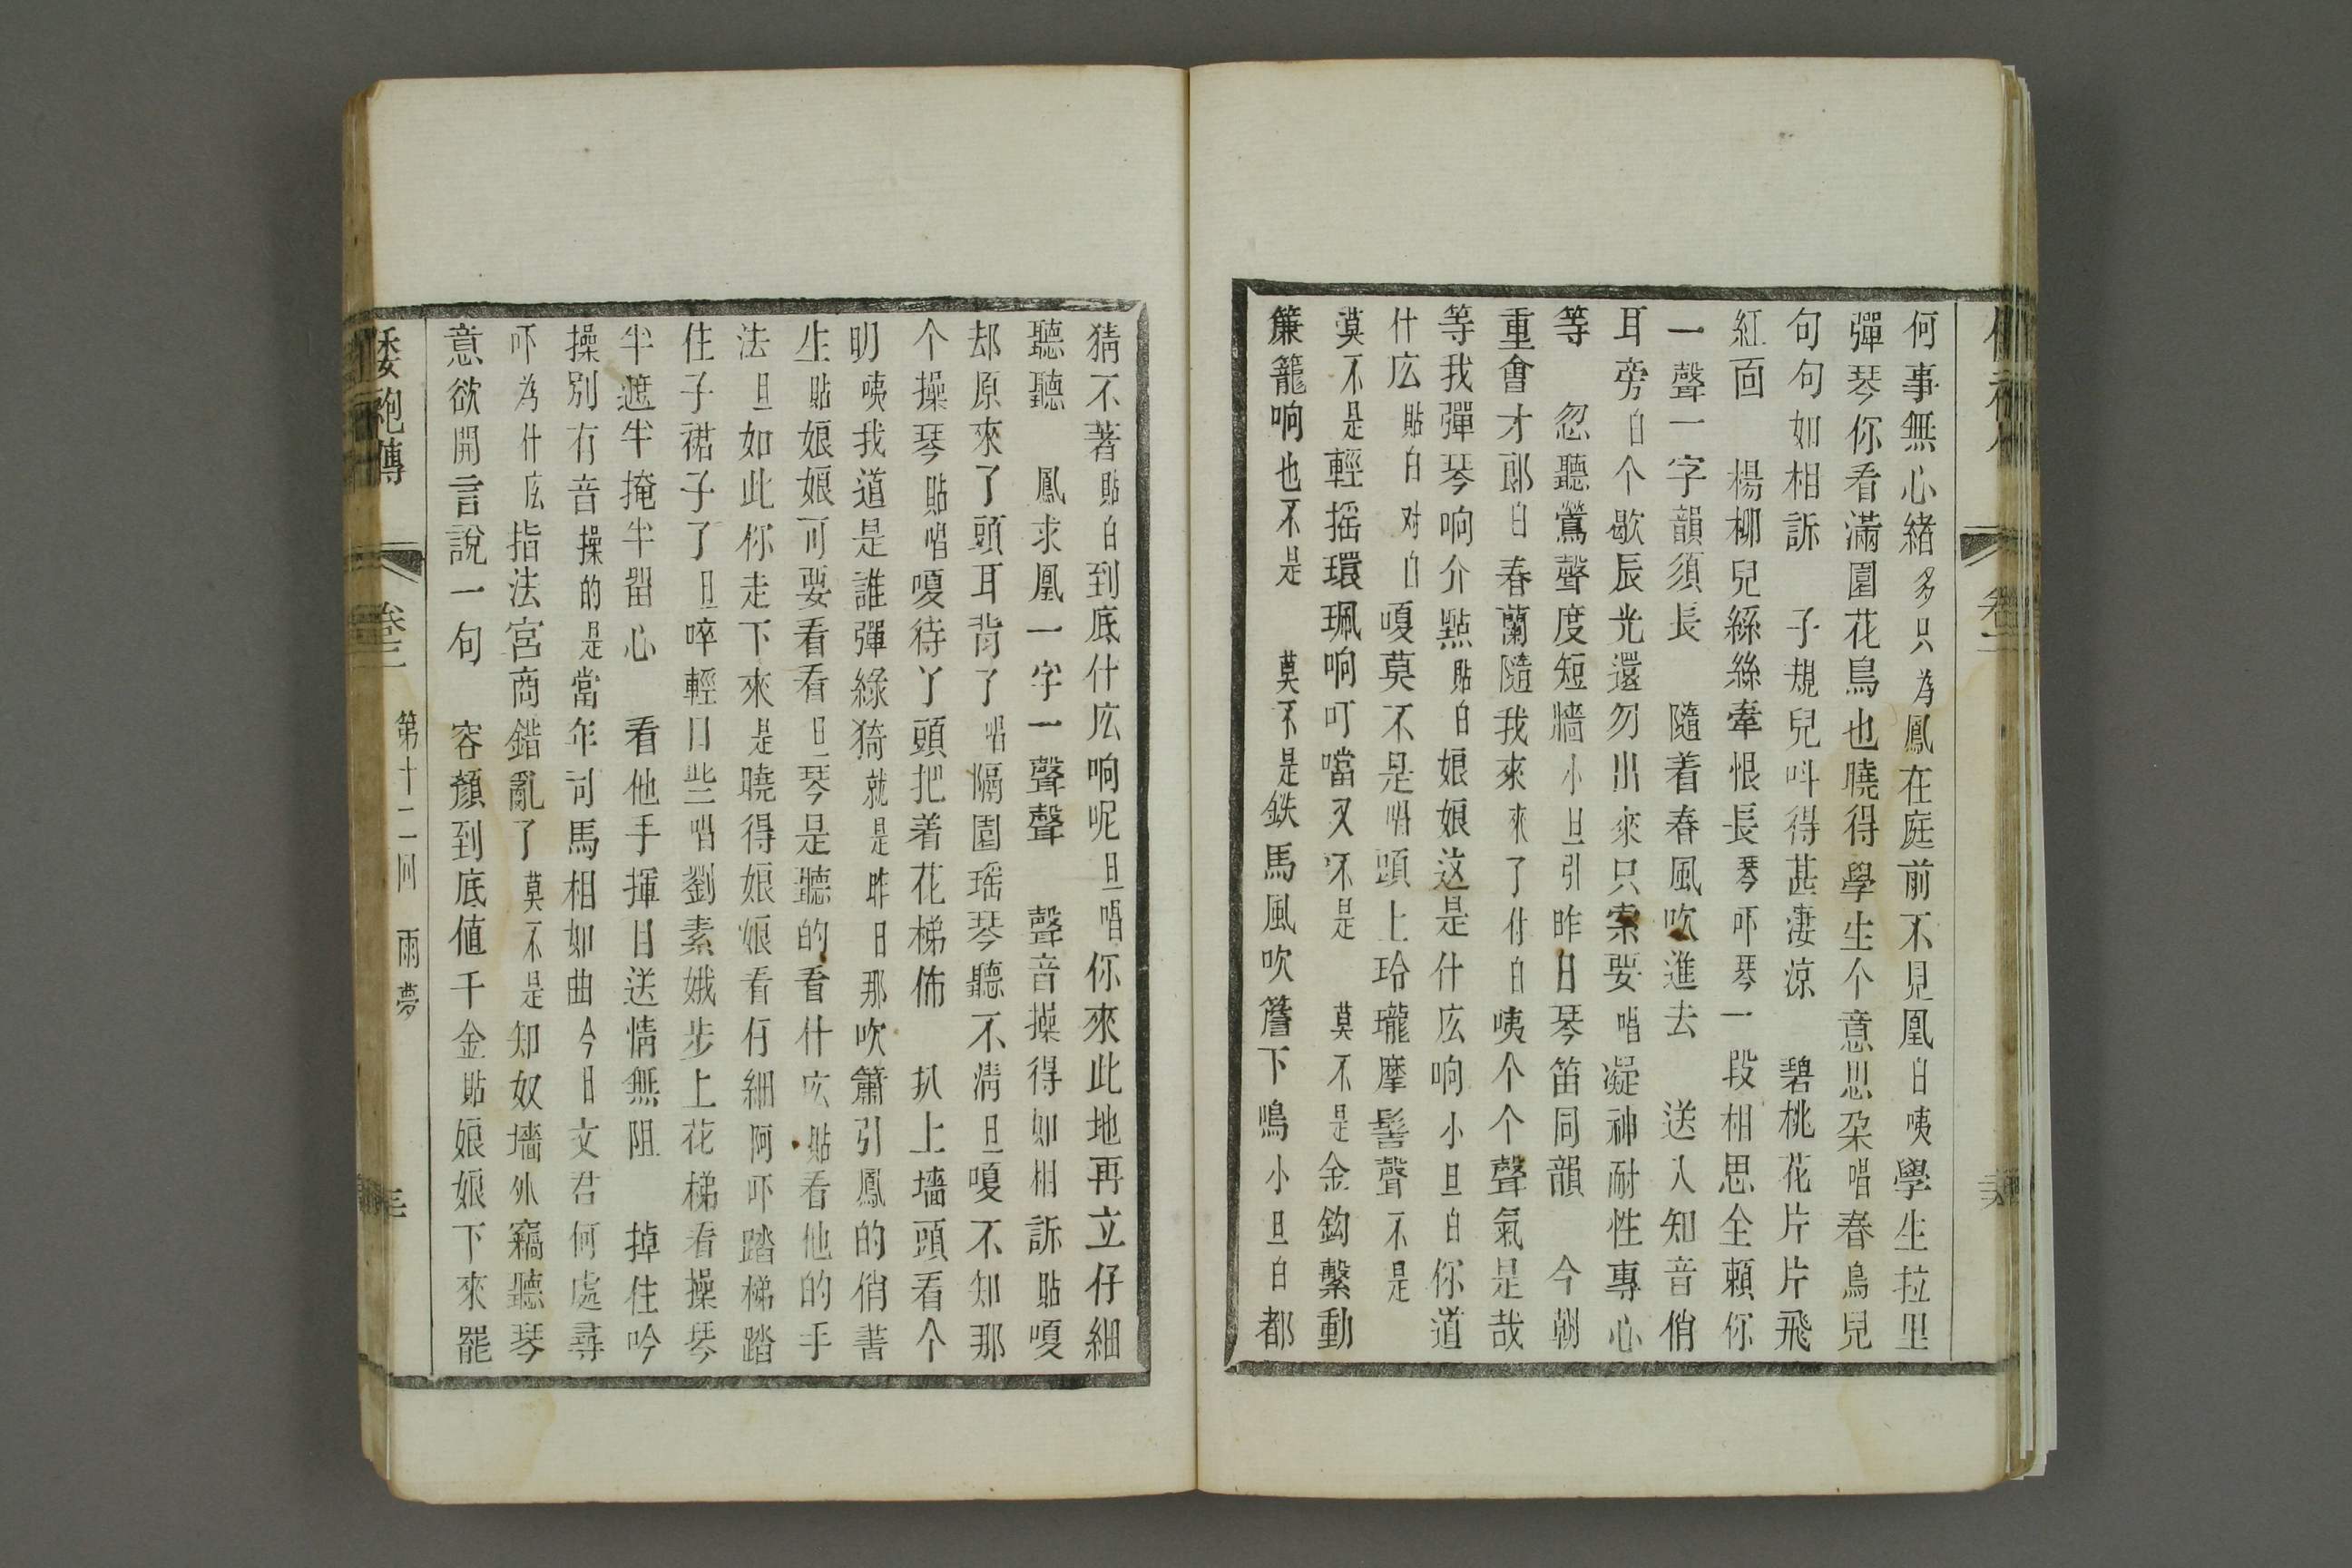 卷三
何事無心緒多只為鳳在庭前不見凰白咦學生拉里
彈琴你看滿園花鳥也曉得學生个意思朶唱春鳥兒
句句如相訴　子規兒呌得甚淒涼　碧桃花片片飛
紅面　楊柳兒絲絲牽恨長琴吓琴一段相思全賴你
一聲一字韻須長　隨着春風吹進去　送入知音俏
耳旁白个歇辰光還勿出來只索要唱凝神耐性專心
等　忽聽鶯聲度短牆小旦引昨日琴笛同韻　今朝
重會才郎白春蘭隨我來來了付白咦个个聲氣是哉
等我彈琴响介㸃貼白娘娘这是什庅响小旦白你道
什庅貼白对白嗄莫不是唱頭上玲瓏摩髻聲不是
莫不是輕搖環珮响叮噹又不是　莫不是金鈎繫動
簾籠响也不是　莫不是鉄馬風吹簷下鳴小旦白都
猜不著貼白到底什庅响呢旦唱你來此地再立仔細
聽聽　鳳求凰一字一聲聲　聲音操得如相訴貼嗄
却原來了頭耳背了唱隔園瑶琴聽不清旦嗄不知那
个操琴貼唱嗄待丫頭把着花梯佈　扒上墻頭看个
明咦我道是誰彈綠猗就是昨日那吹簫引鳳的俏書
生貼娘娘可要看看旦琴是聽的看什庅貼看他的手
法旦如此你走下來是曉得娘娘看仔細阿吓踏梯踏
住子裙子了旦啐輕口些唱劉素娥步上花梯看操琴
半遮半掩半畱心　看他手揮目送情無阻　掉住吟
操別有音操的是當年司馬相如曲今日文君何處尋
吓為什庅指法宮商錯亂了莫不是知奴墻外竊聽琴
意欲開言說一句　容顏到底値千金貼娘娘下來罷
倭袍傳　卷三　第十二回　雨夢